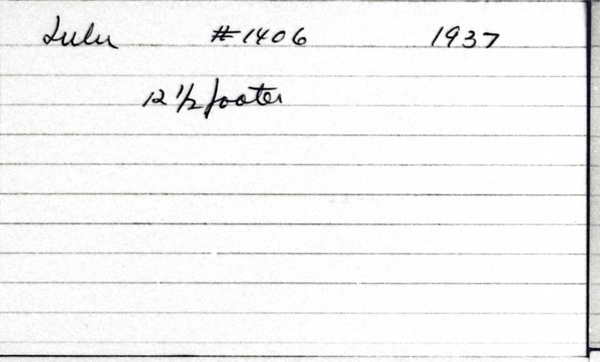 Lulu #1406 1937
12 1/2 footer